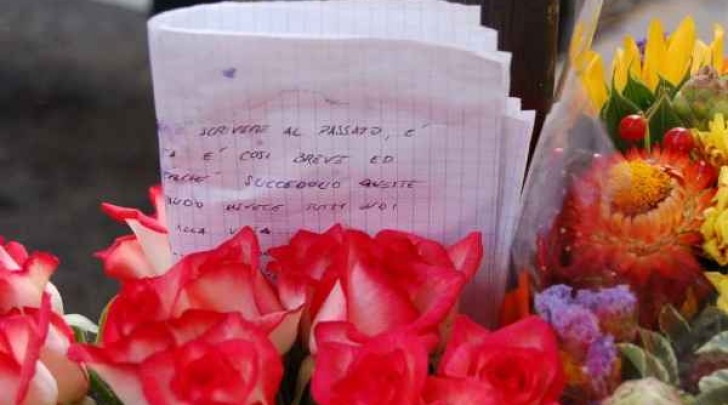 SCRIVERE AL PASSATO, E'
E' COSI BREVE ED
SUCCEDONO QUESTE
INVECE TUTTI NOI
ALLA VITA